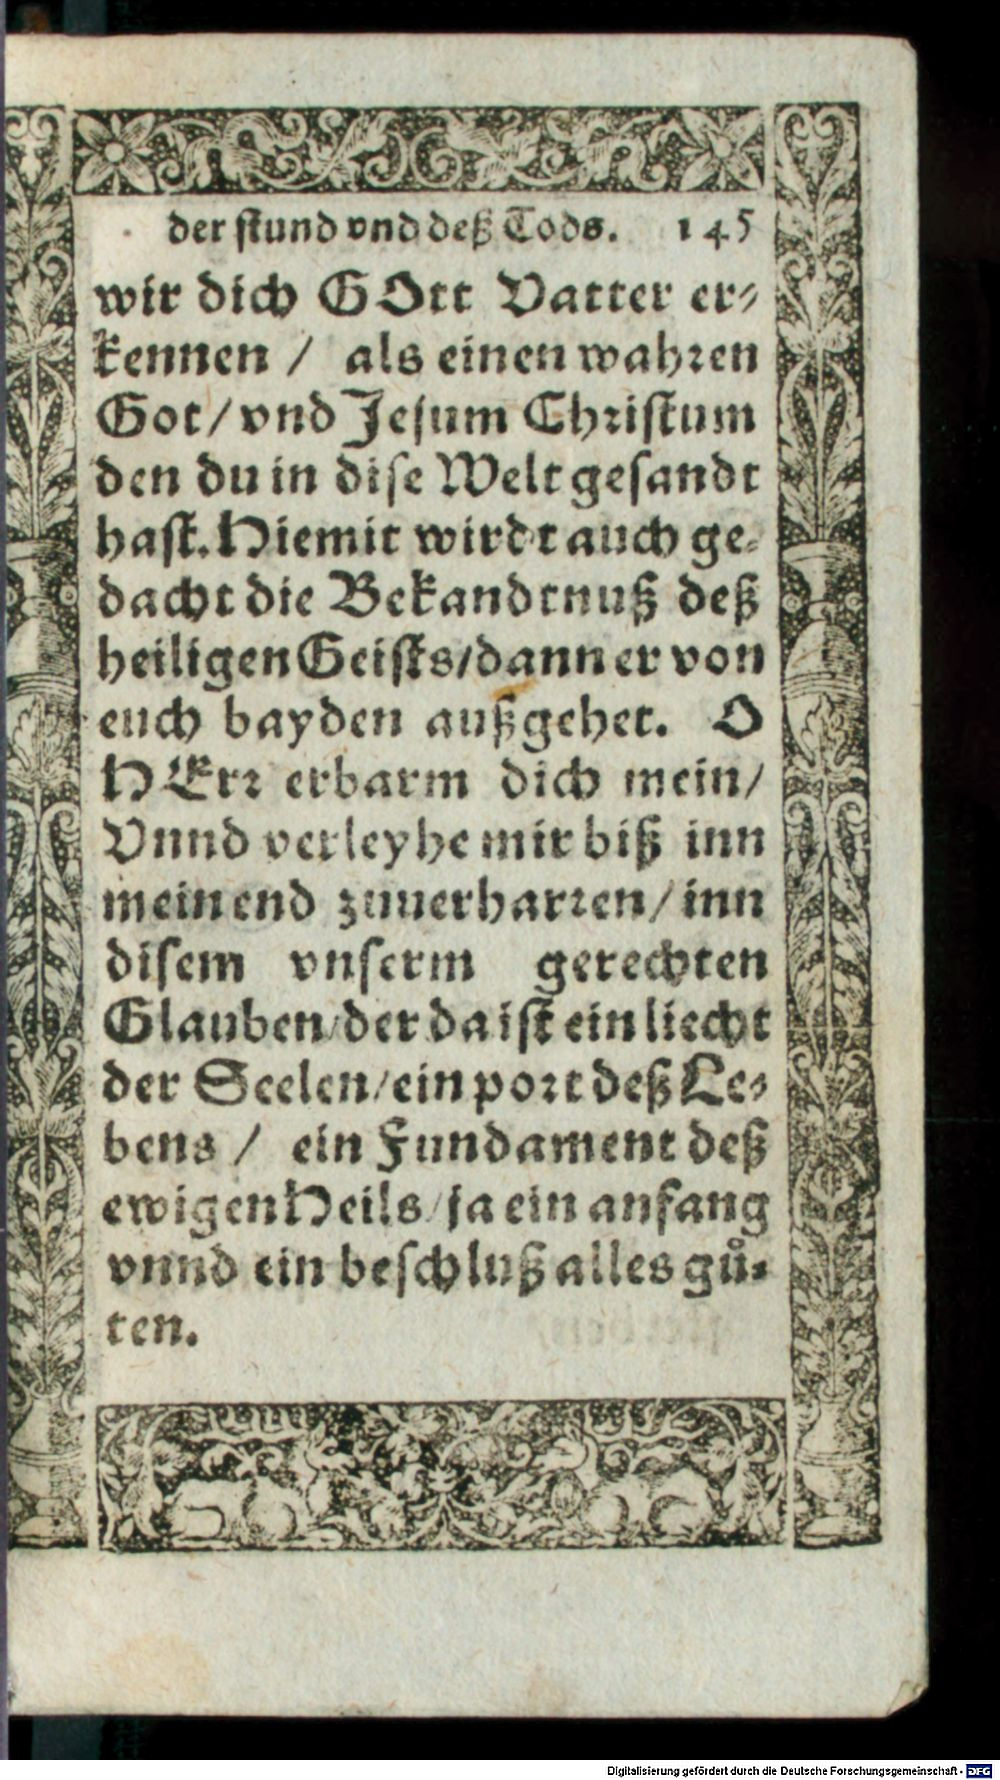 der stund vnd deß Tods. 145
wir dich GOtt Vatter er-
kennen / als einen wahren
Got / vnd Jesum Christum
den du in dise Welt gesandt
hast. Hiemit wirdt auch ge-
dacht die Bekandtnuß deß
heiligen Geists / dann er von
euch bayden außgehet. O
HErr erbarm dich mein /
Vnnd verleyhe mir biß inn
mein end zuuerharren / inn
disem vnserm gerechten
Glauben / der da ist ein liecht
der Seelen / ein port deß Le-
bens / ein Fundament deß
ewigen Heils / ja ein anfang
vnnd ein beschluß alles gů-
ten.
Digitalisierung gefördert durch die Deutsche Forschungsgemeinschaft - DFG